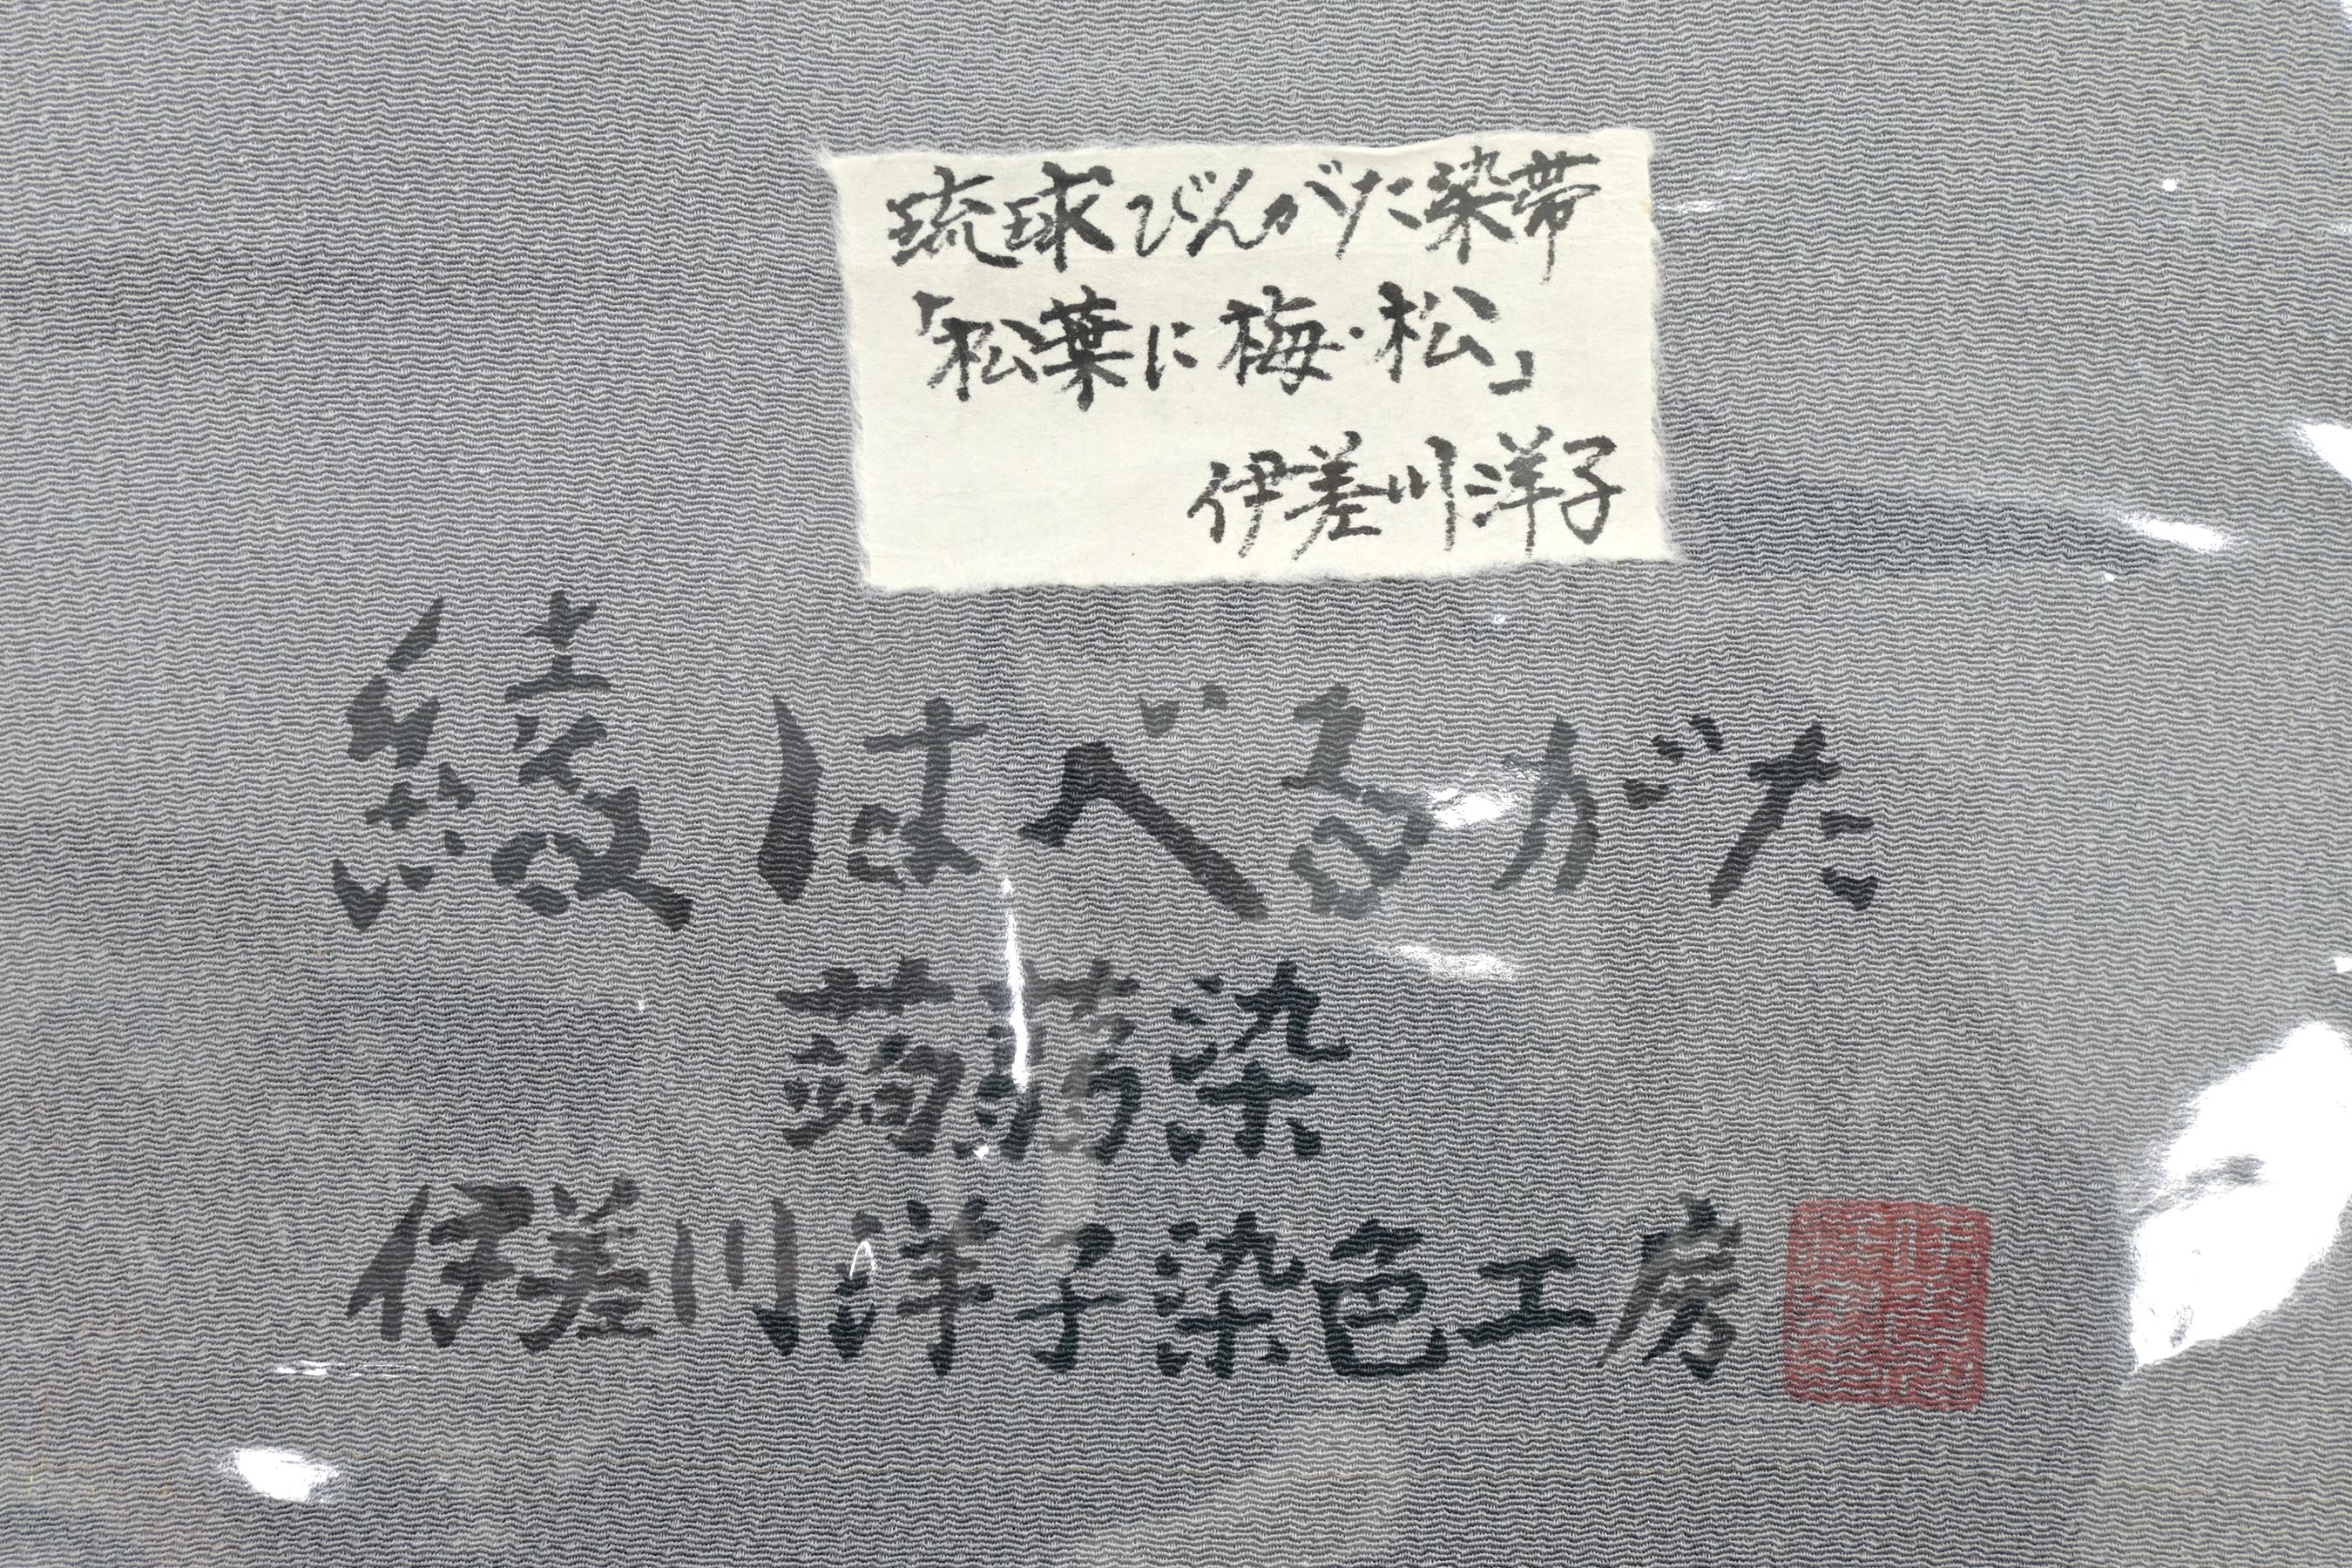 琉球びんがた染帯
「松葉に梅・松」
伊差川洋子
綾はべるがた
蒟蒻染
伊差川洋子染色工房